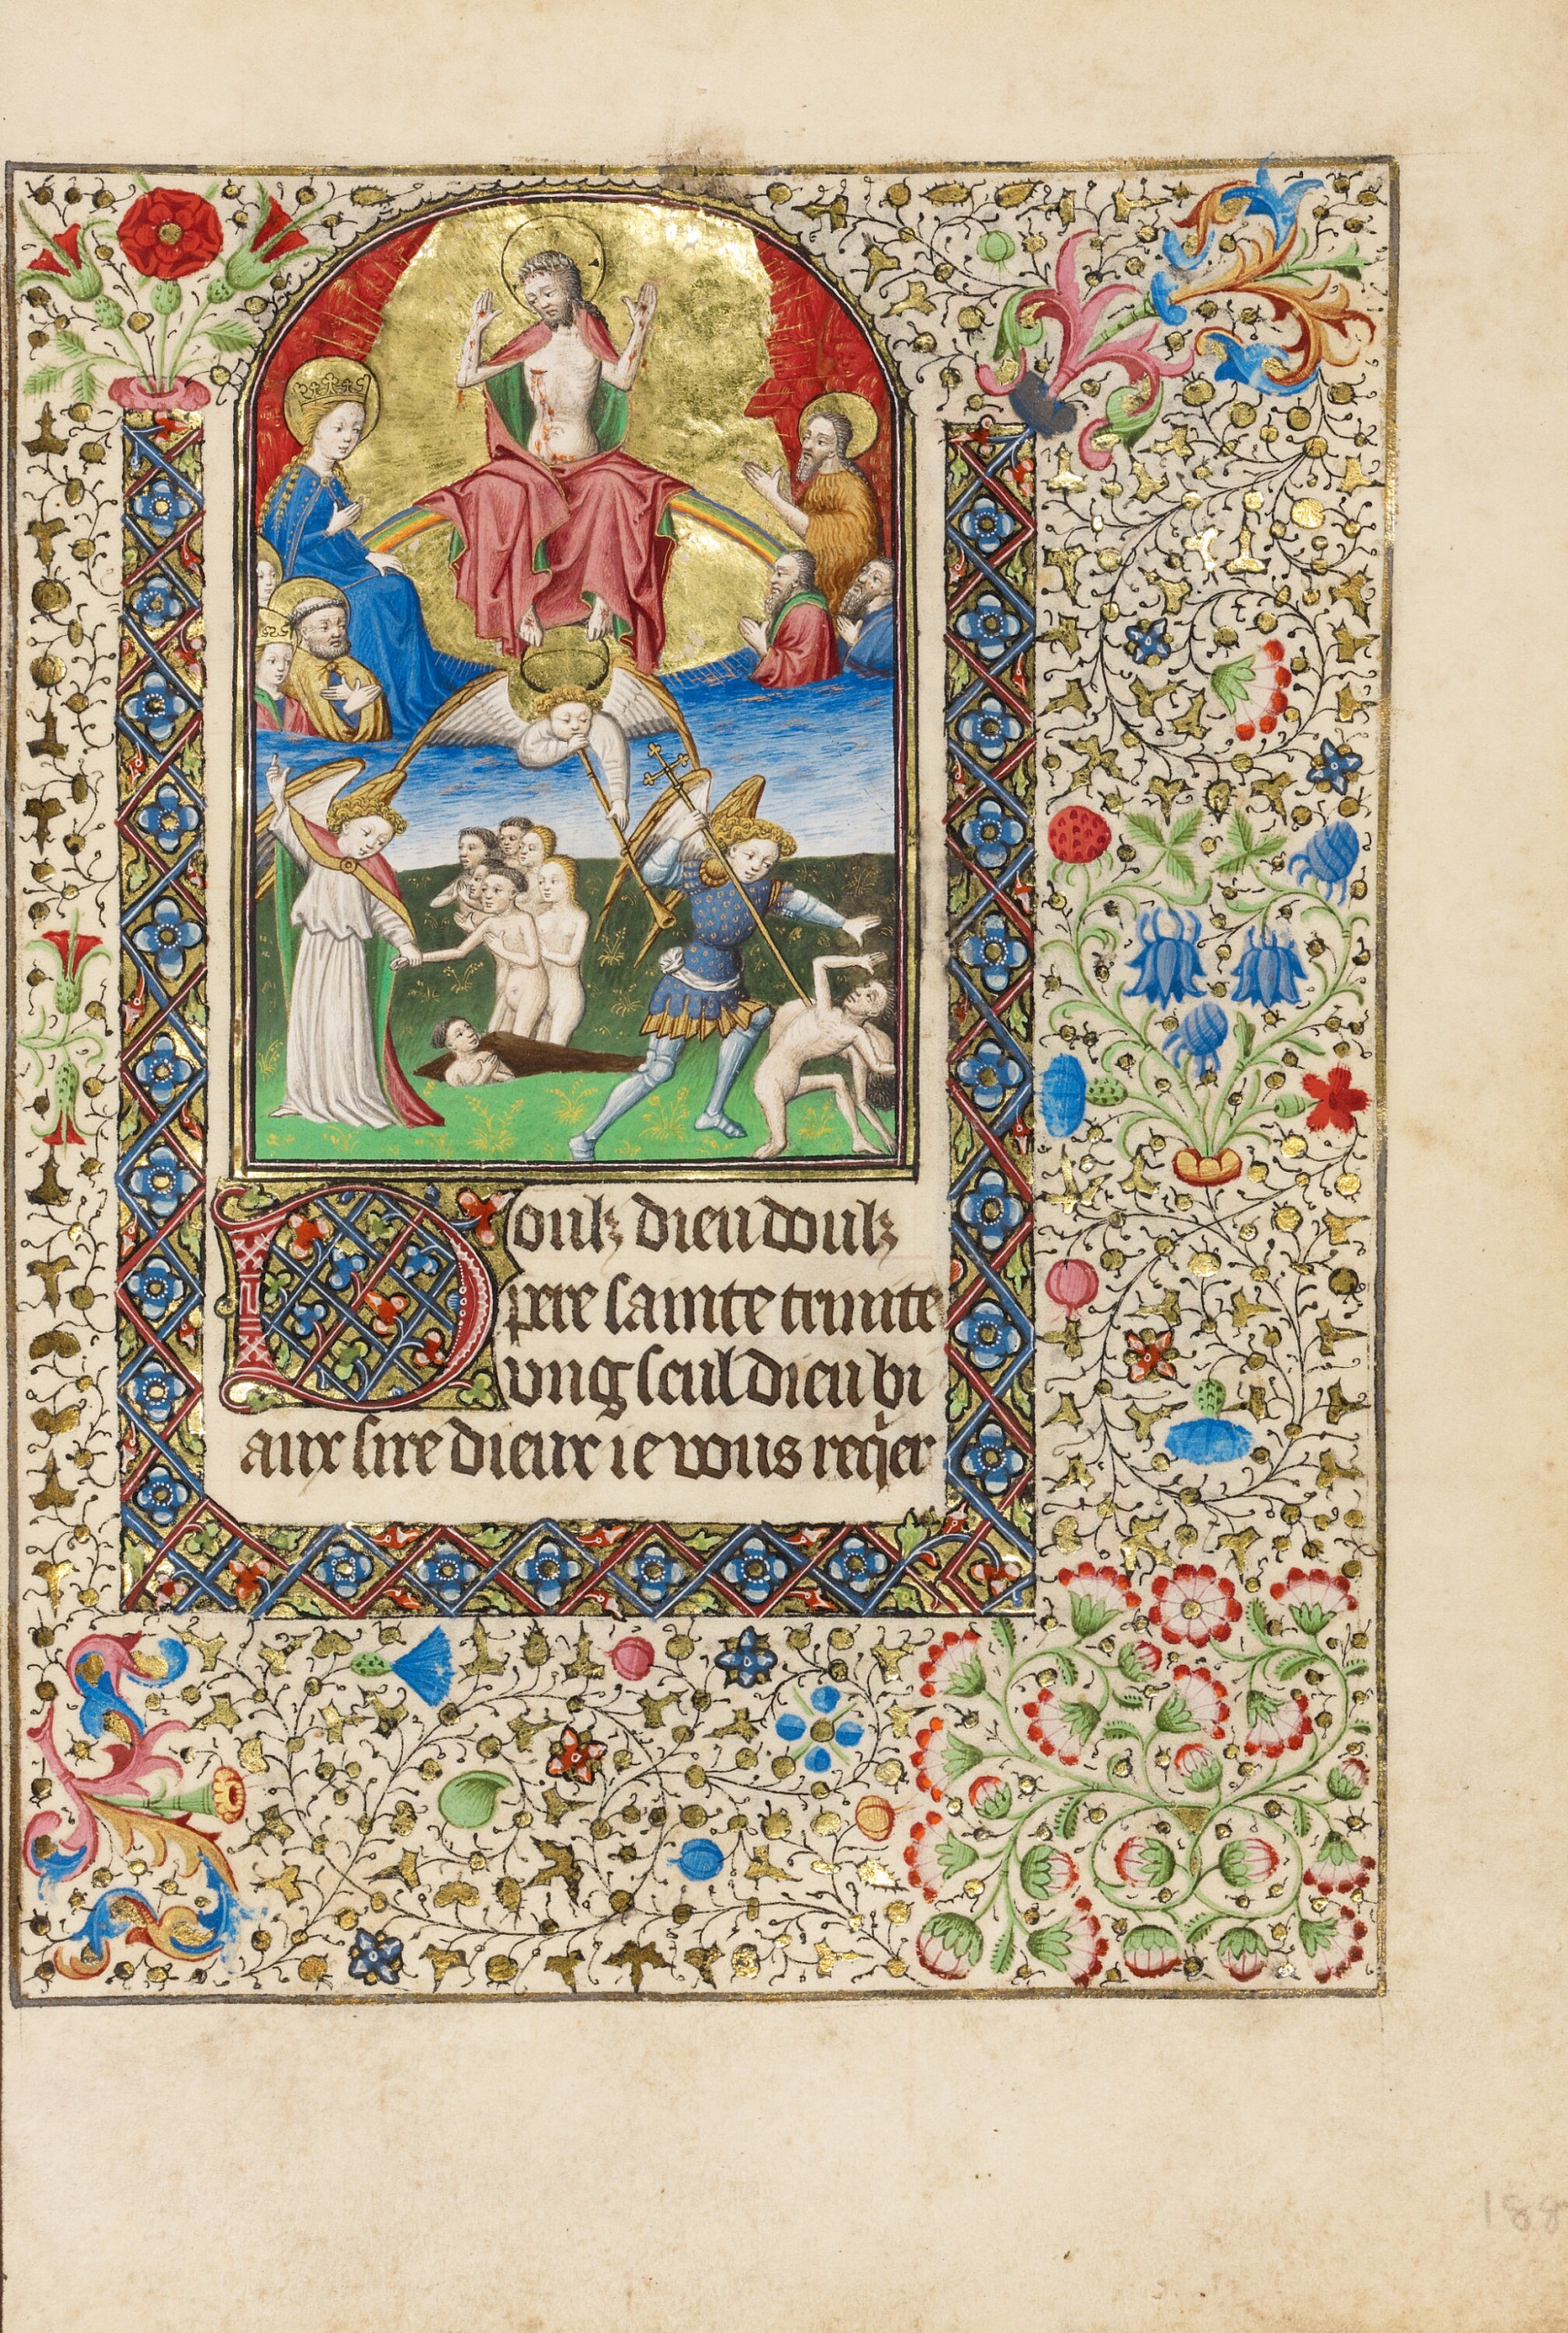 Doulz dieu doulz
pere sainte trinite
ung seul dieu bi
aux sire dieux ie vous req̄er
188